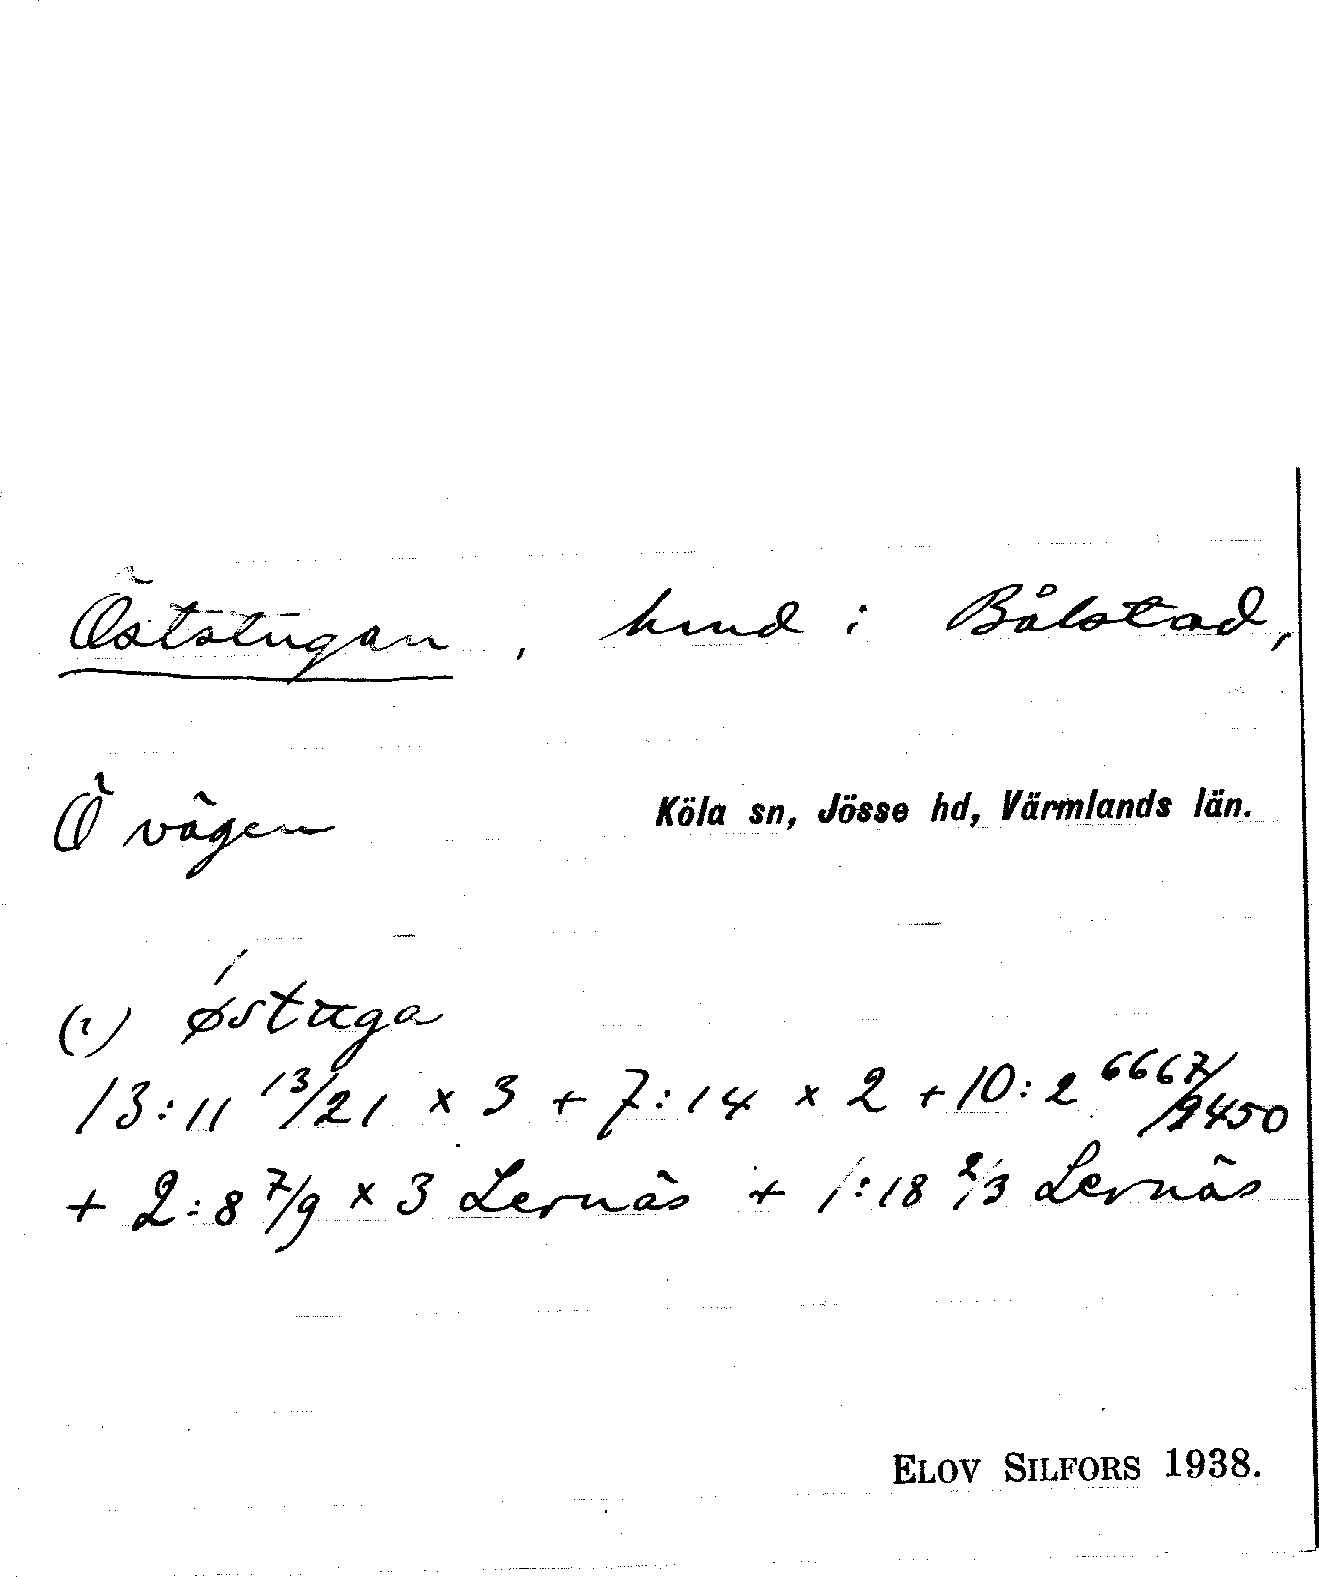 Öststugan, hmd i Bålstad,
Ö vägen Köla sn, Jösse hd, Värmlands län.
(i) østuga
13:11 13/21 x 3 + 7:14 x 2 + 10:2 6667/9450
+ 2:8 7/9 x 3 Lernäs + 1:18 2/3 Lernäs
ELOV SILFORS 1938.